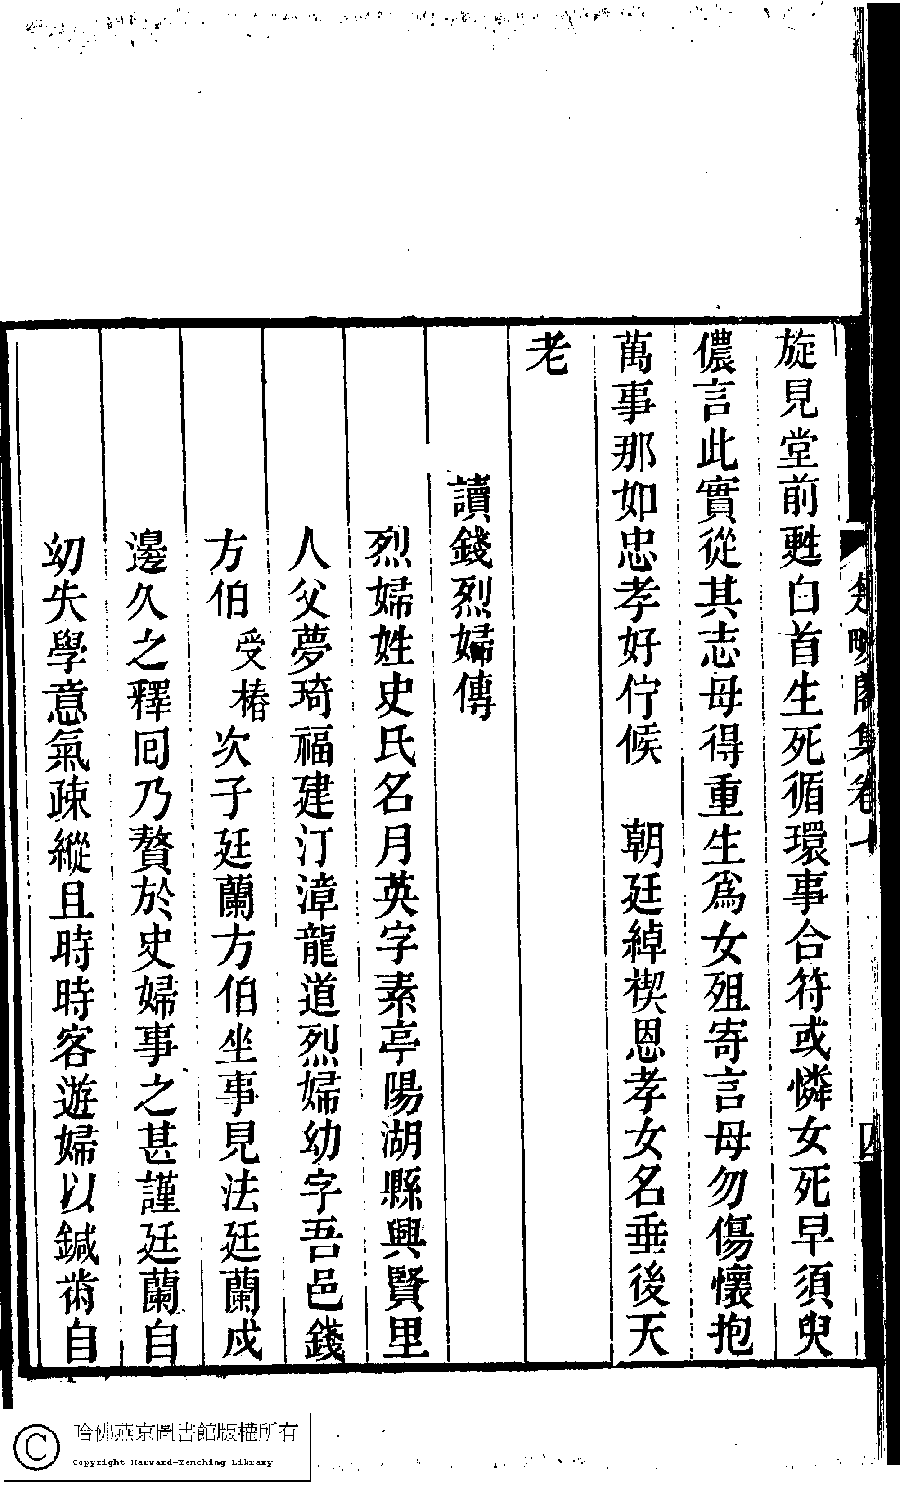 旋見堂前甦白首生死循環事合符或憐女死早須臾
儂言此實從其志母得重生為女殂寄言母勿傷懷抱
萬事那如忠孝好佇候　朝廷綽禊恩孝女名垂後天
老
讀錢烈婦傳
烈婦姓史氏名月英字素亭陽湖縣興賢里
人父夢琦福建汀漳龍道烈婦幼字吾邑錢
方伯受椿次子廷蘭方伯坐事見法廷蘭戍
邊久之釋回乃贅於史婦事之甚謹廷蘭自
幼失學意氣疎縱且時時客遊婦以鍼黹自
集卷十
四
哈佛燕京圖書館版權所有
Copyright Harvard-Yenching Library